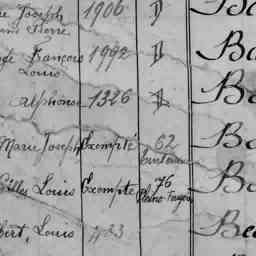 Joseph 1906 D Ba
Pierre
François 1992 D Ba
Louis
Alphonse 1326 D Ba
Marie Joseph Exempté 62 Ba
Gilles Louis Exempté 76 Ba
Louis 433 Bea